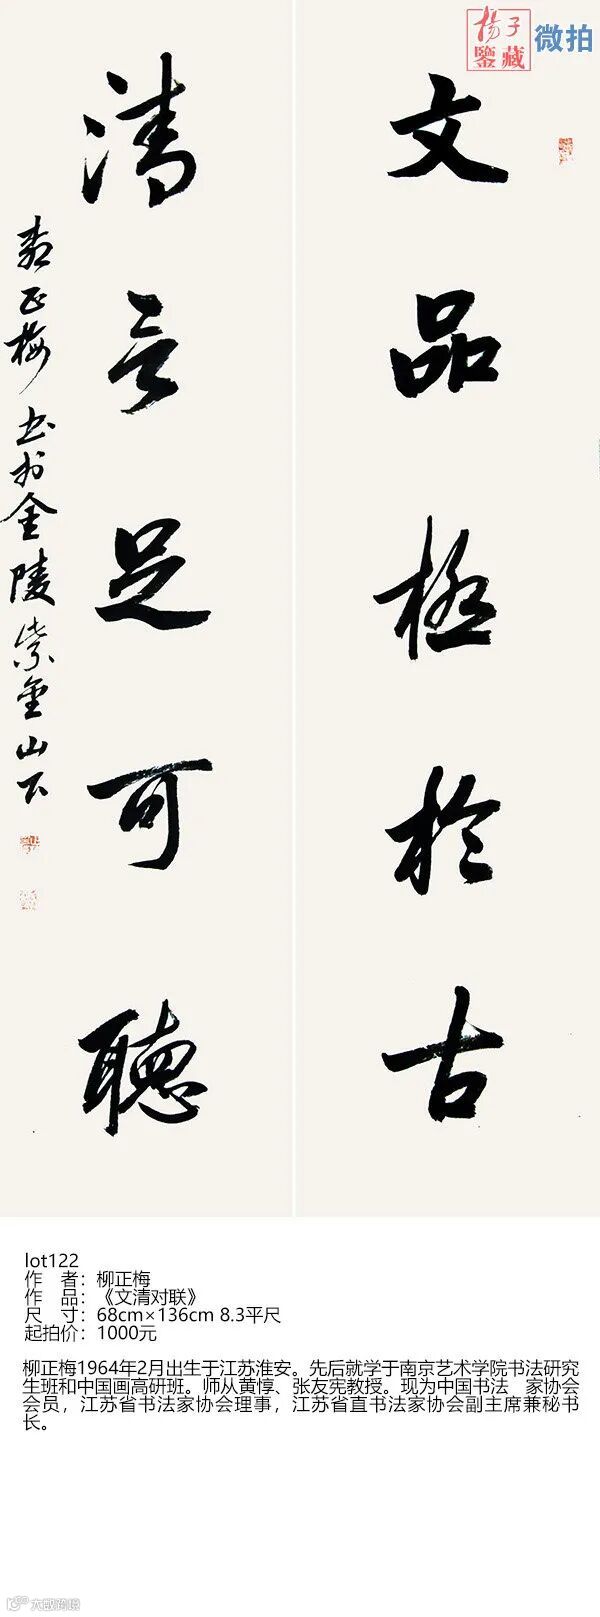 杨子
鑒藏
微拍
文品極於古
清言足可聽
柳正梅書於金陵紫金山下
lot122
作 者：柳正梅
作 品：《文清对联》
尺 寸：68cm×136cm 8.3平尺
起拍价：1000元
柳正梅1964年2月出生于江苏淮安。先后就学于南京艺术学院书法研究
生班和中国画高研班。师从黄惇、张友宪教授。现为中国书法 家协会
会员，江苏省书法家协会理事，江苏省直书法家协会副主席兼秘书
长。